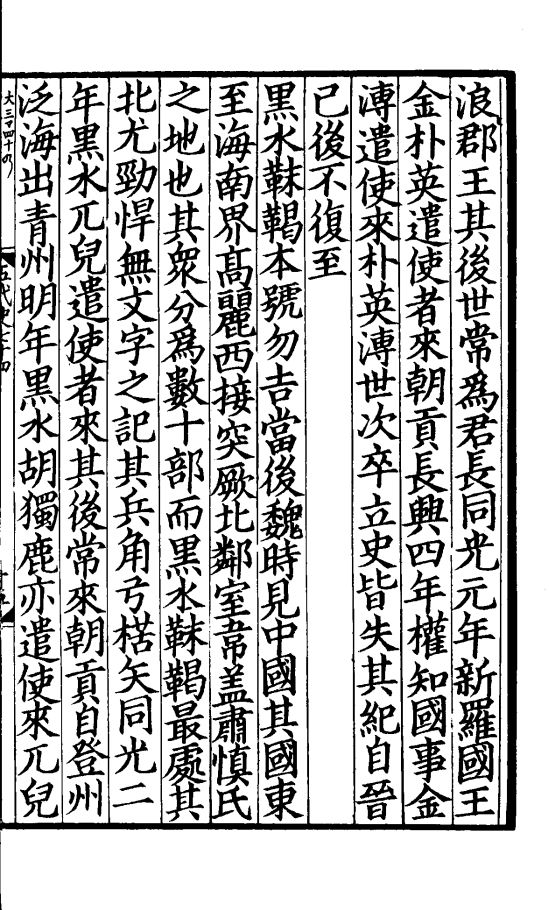 浪郡王其後世常爲君長同光元年新羅國王
金朴英遣使者來朝貢長興四年權知國事金
溥遣使來朴英溥世次卒立史皆失其紀自晉
已後不復至
黑水靺鞨本號勿吉當後魏時見中國其國東
至海南界髙麗西接突厥北鄰室韋盖肅慎氏
之地也其衆分爲數十部而黑水靺鞨最處其
北尤勁悍無文字之記其兵角弓楛矢同光二
年黑水兀兒遣使者來其後常來朝貢自登州
泛海出青州明年黑水胡獨鹿亦遣使來兀兒